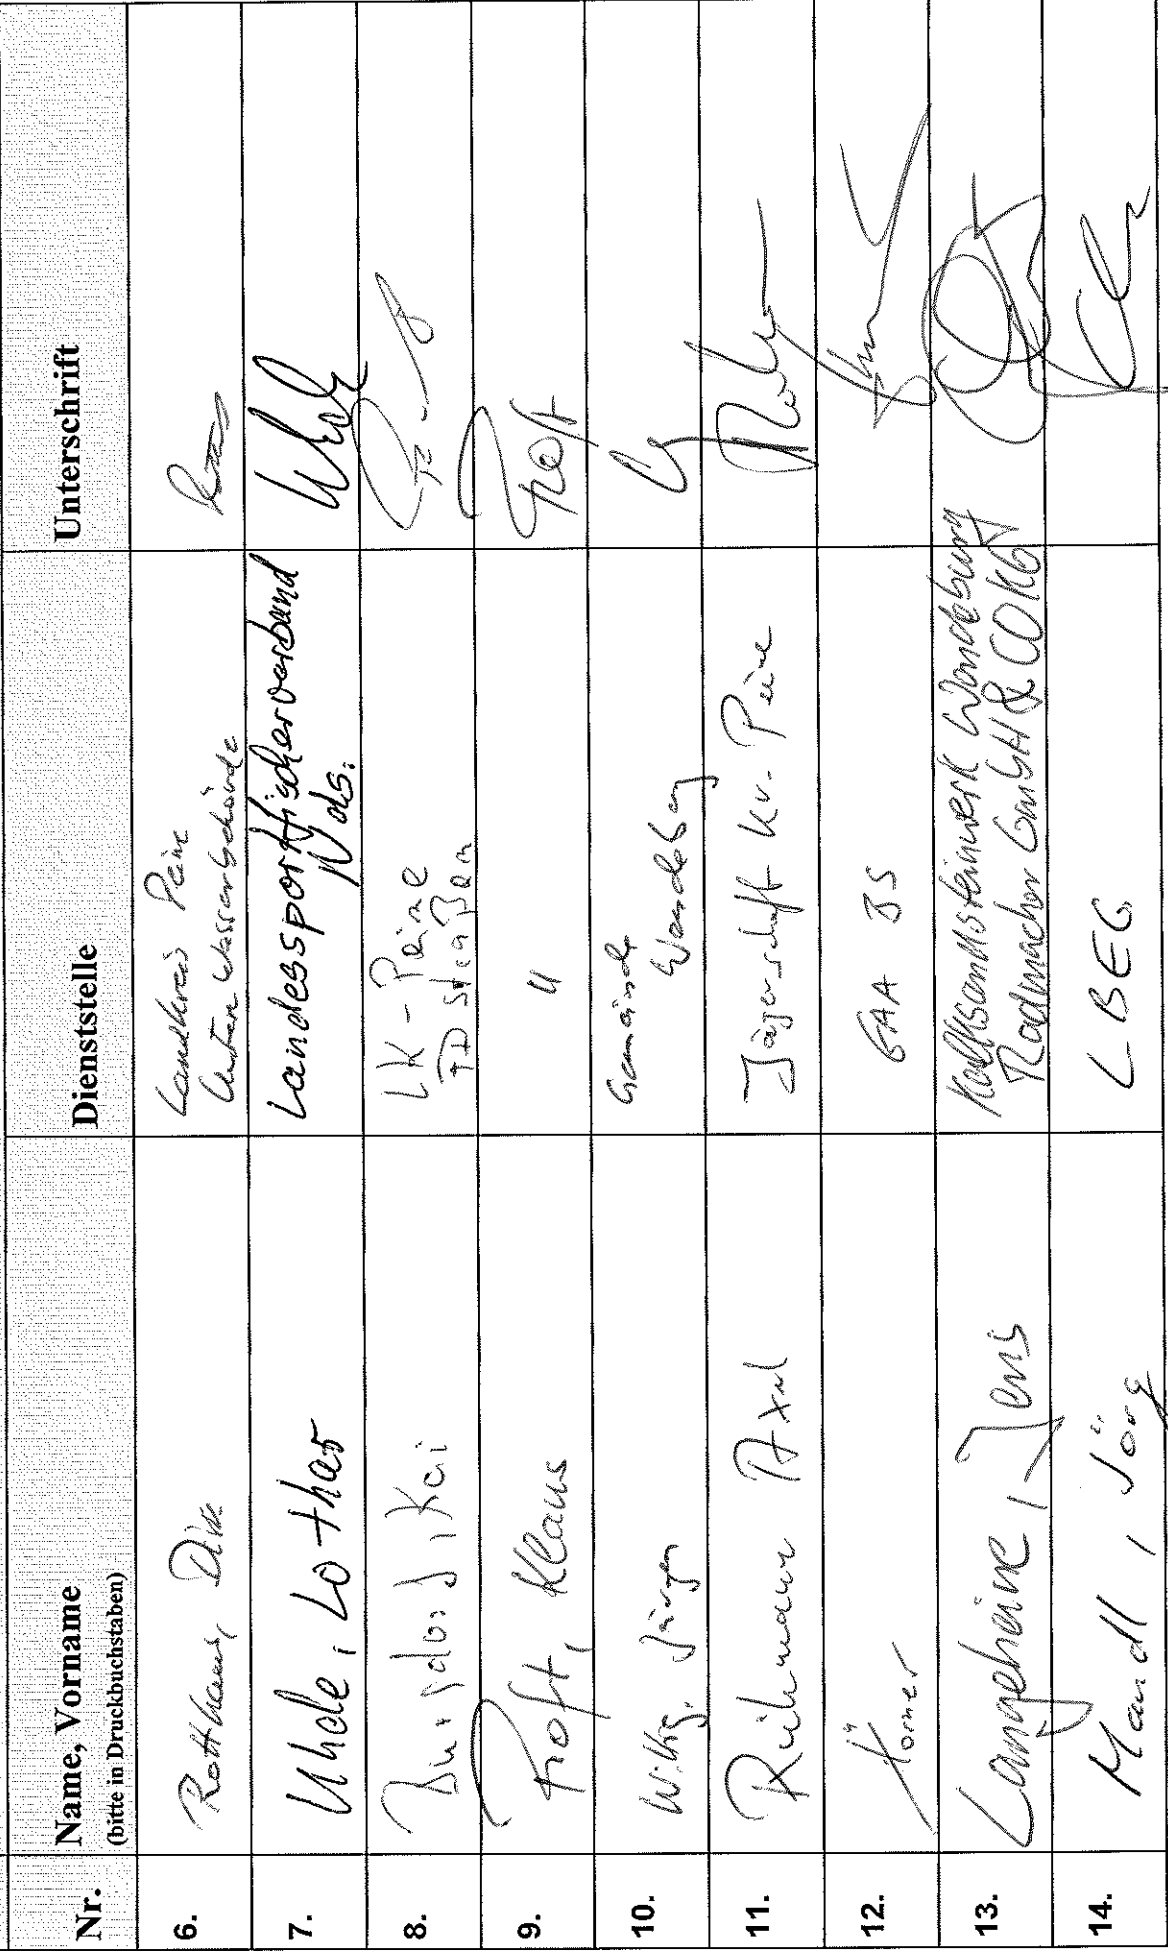 Nr. Name, Vorname Dienststelle Unterschrift
(bitte in Druckbuchstaben)
6. Rotthaus, Dirk Landkreis Peine
Untere Wasserbehörde
7. Uhde, Lothar Landessportfischerverband
Nds.
8. Kai LK-Peine
FD Straßen
9. Proft, Klaus " Proft
10. Wittig, Jürgen Gemeinde
Wendeburg
11. Axel Jägerschaft Kr. Peine
12. Körner GAA BS
13. Langeheine, Jens Kalksandsteinwerk Wendeburg
Radmacher GmbH & CO KG
14. Mandl, Jörg LBEG